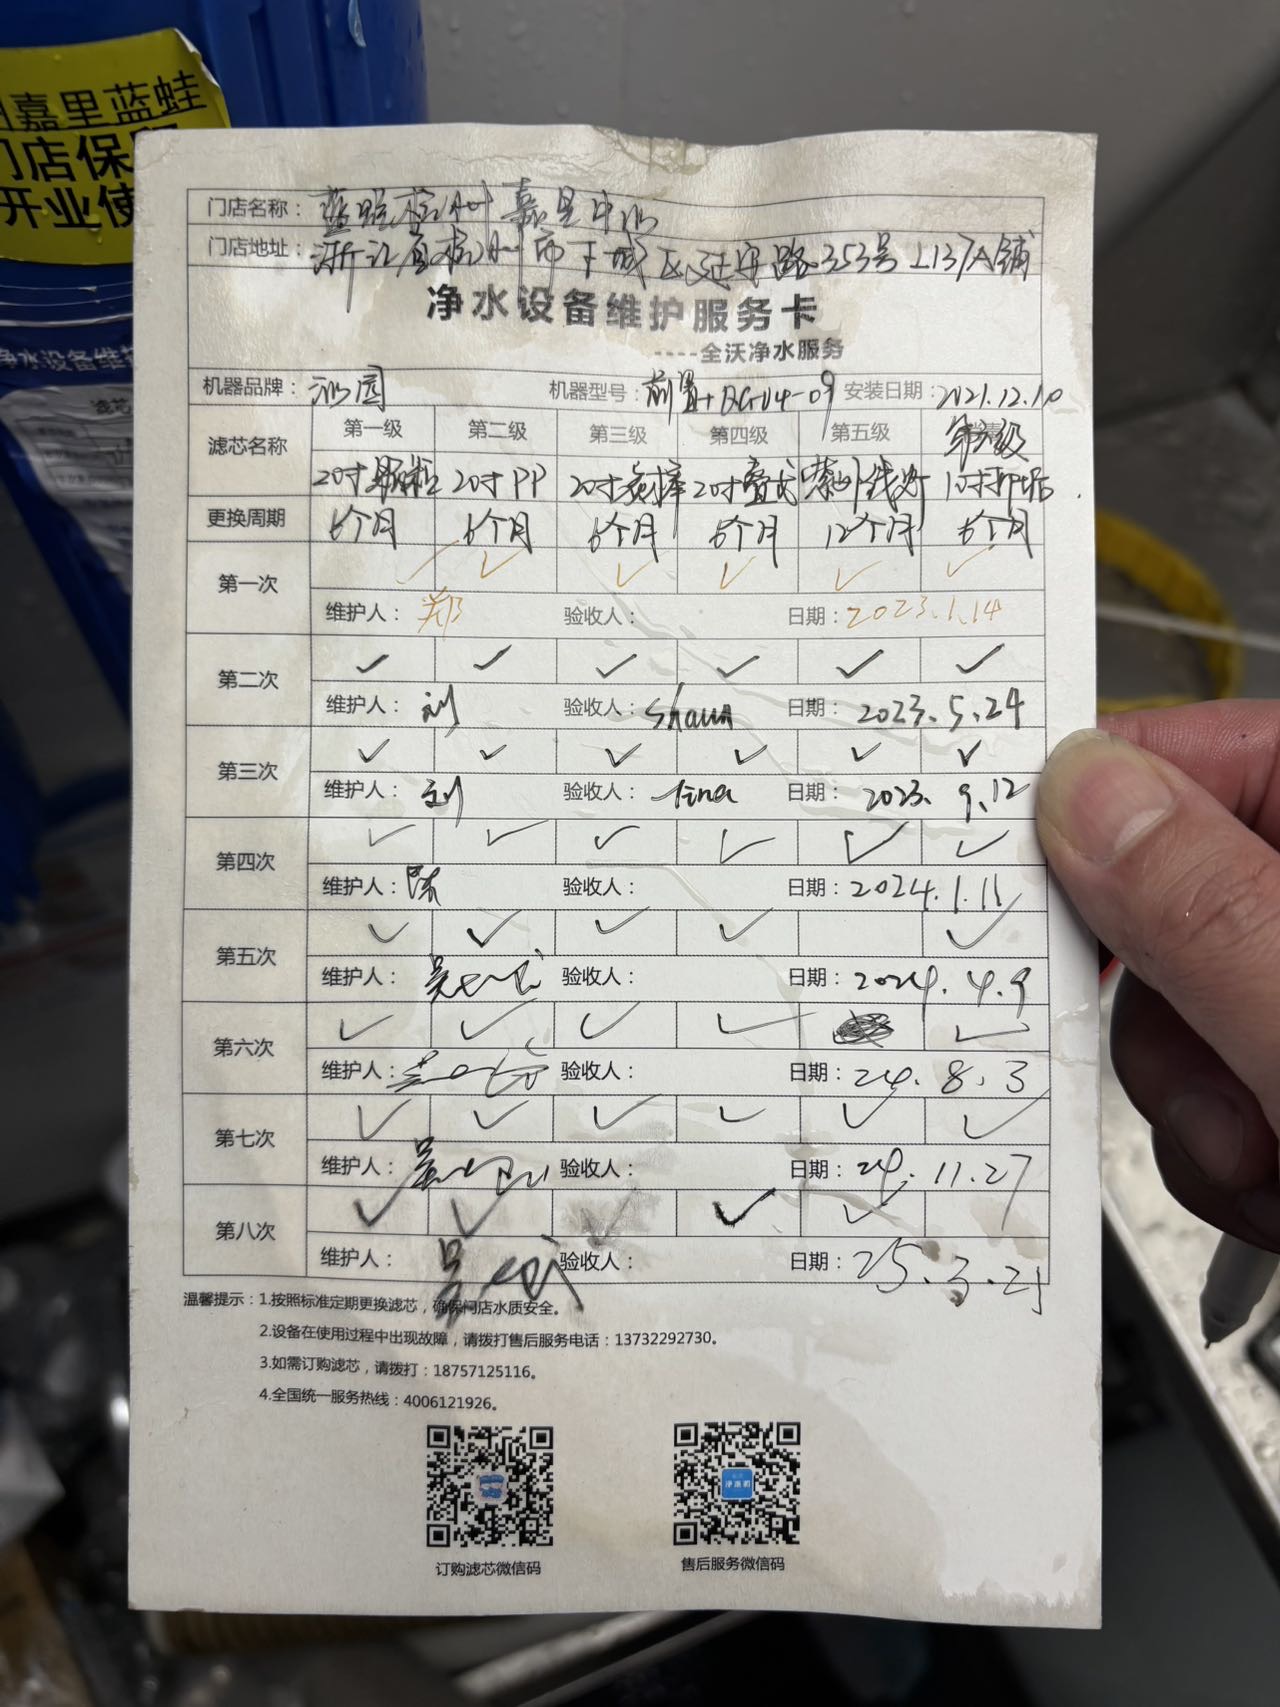 嘉里蓝蛙
门店保
开业使
净水设备维
门店名称：蓝蛙杭州嘉里中心
门店地址：浙江省杭州市下城区延安路353号L137A铺
净水设备维护服务卡
----全沃净水服务
机器品牌：沁园 机器型号：前置+ 安装日期：2021.12.10
滤芯名称 第一级 第二级 第三级 第四级 第五级 第六级
20寸颗粒 20寸PP 20寸炭棒 20寸叠式 紫外线灯 10寸抑垢
更换周期 6个月 6个月 6个月 6个月 12个月 6个月
第一次 ✓ ✓ ✓ ✓ ✓ ✓
维护人：郑 验收人： 日期：2023.1.14
第二次 ✓ ✓ ✓ ✓ ✓ ✓
维护人：刘 验收人：Shaun 日期：2023.5.24
第三次 ✓ ✓ ✓ ✓ ✓ ✓
维护人：刘 验收人：tina 日期：2023.9.12
第四次 ✓ ✓ ✓ ✓ ✓ ✓
维护人：陈 验收人： 日期：2024.1.11
第五次 ✓ ✓ ✓ ✓ ✓
维护人：吴 验收人： 日期：2024.4.9
第六次 ✓ ✓ ✓ ✓ ✓
维护人：吴 验收人： 日期：24.8.3
第七次 ✓ ✓ ✓ ✓ ✓ ✓
维护人：吴 验收人： 日期：24.11.27
第八次 ✓ ✓ ✓ ✓ ✓
维护人：吴 验收人： 日期：25.3.21
温馨提示：1.按照标准定期更换滤芯，确保门店水质安全。
2.设备在使用过程中出现故障，请拨打售后服务电话：13732292730。
3.如需订购滤芯，请拨打：18757125116。
4.全国统一服务热线：4006121926。
订购滤芯微信码 售后服务微信码